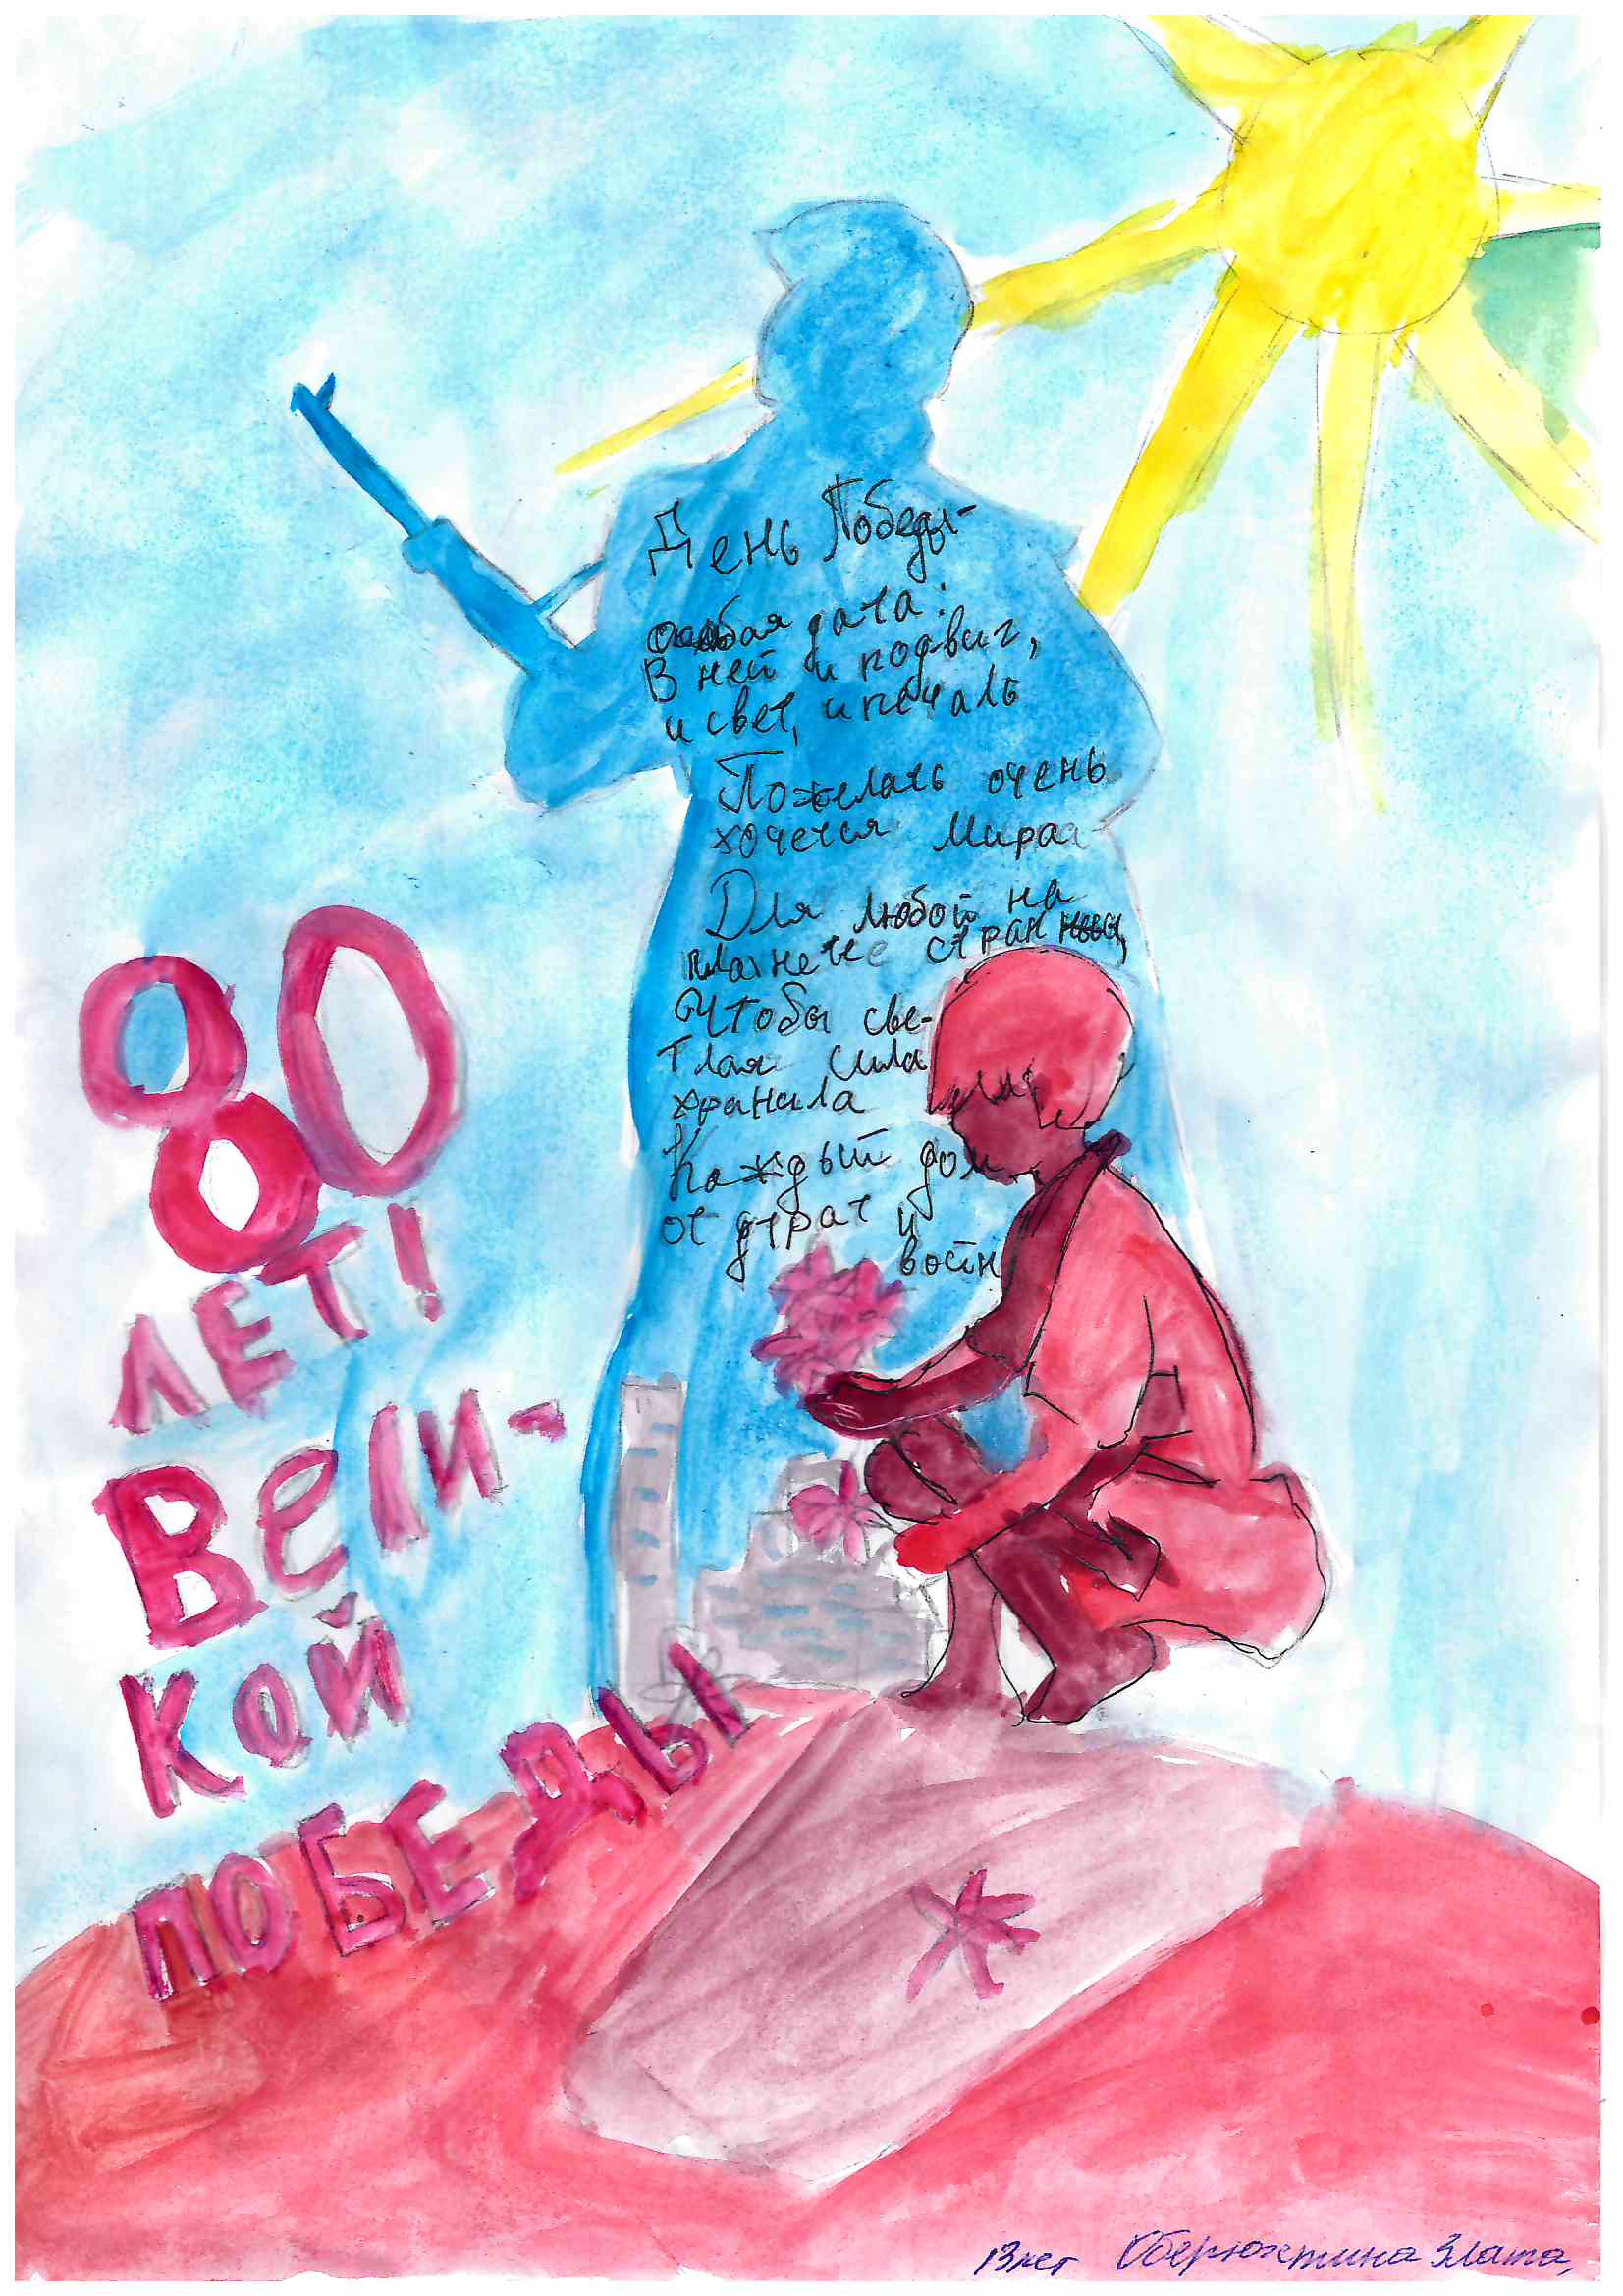 День Победы-
особая дата:
В ней и подвиг,
и свет, и печаль
Пожелать очень
хочется Мира
Для любой на
планете стран
Чтобы све-
тлая сила
хранила
Каждый дом
от утрат и
войн
80
ЛЕТ!
Вели-
кой
ПОБЕДЫ
13 лет Злата,